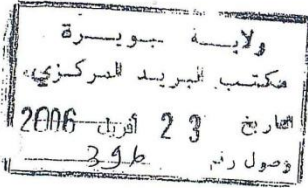 ولايـــة بـويـــرة
مكتـب البريـد المركـزي
التاريخ 23 أفريل 2006
وصول رقم 396